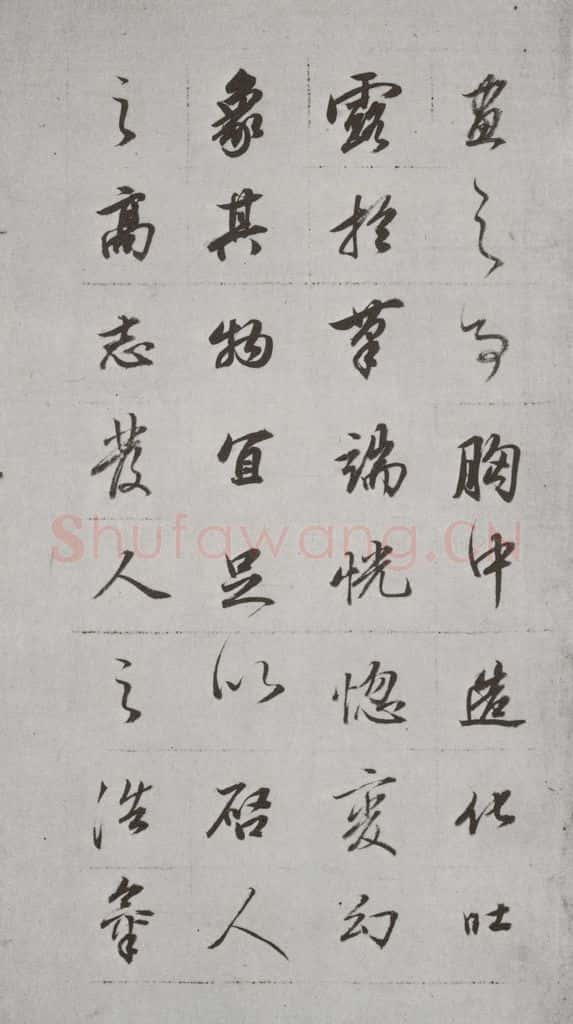 畫之為胸中造化吐
露於筆端恍惚變幻
象其物宜足以啓人
之高志發人之浩氣
Shufawang.CN